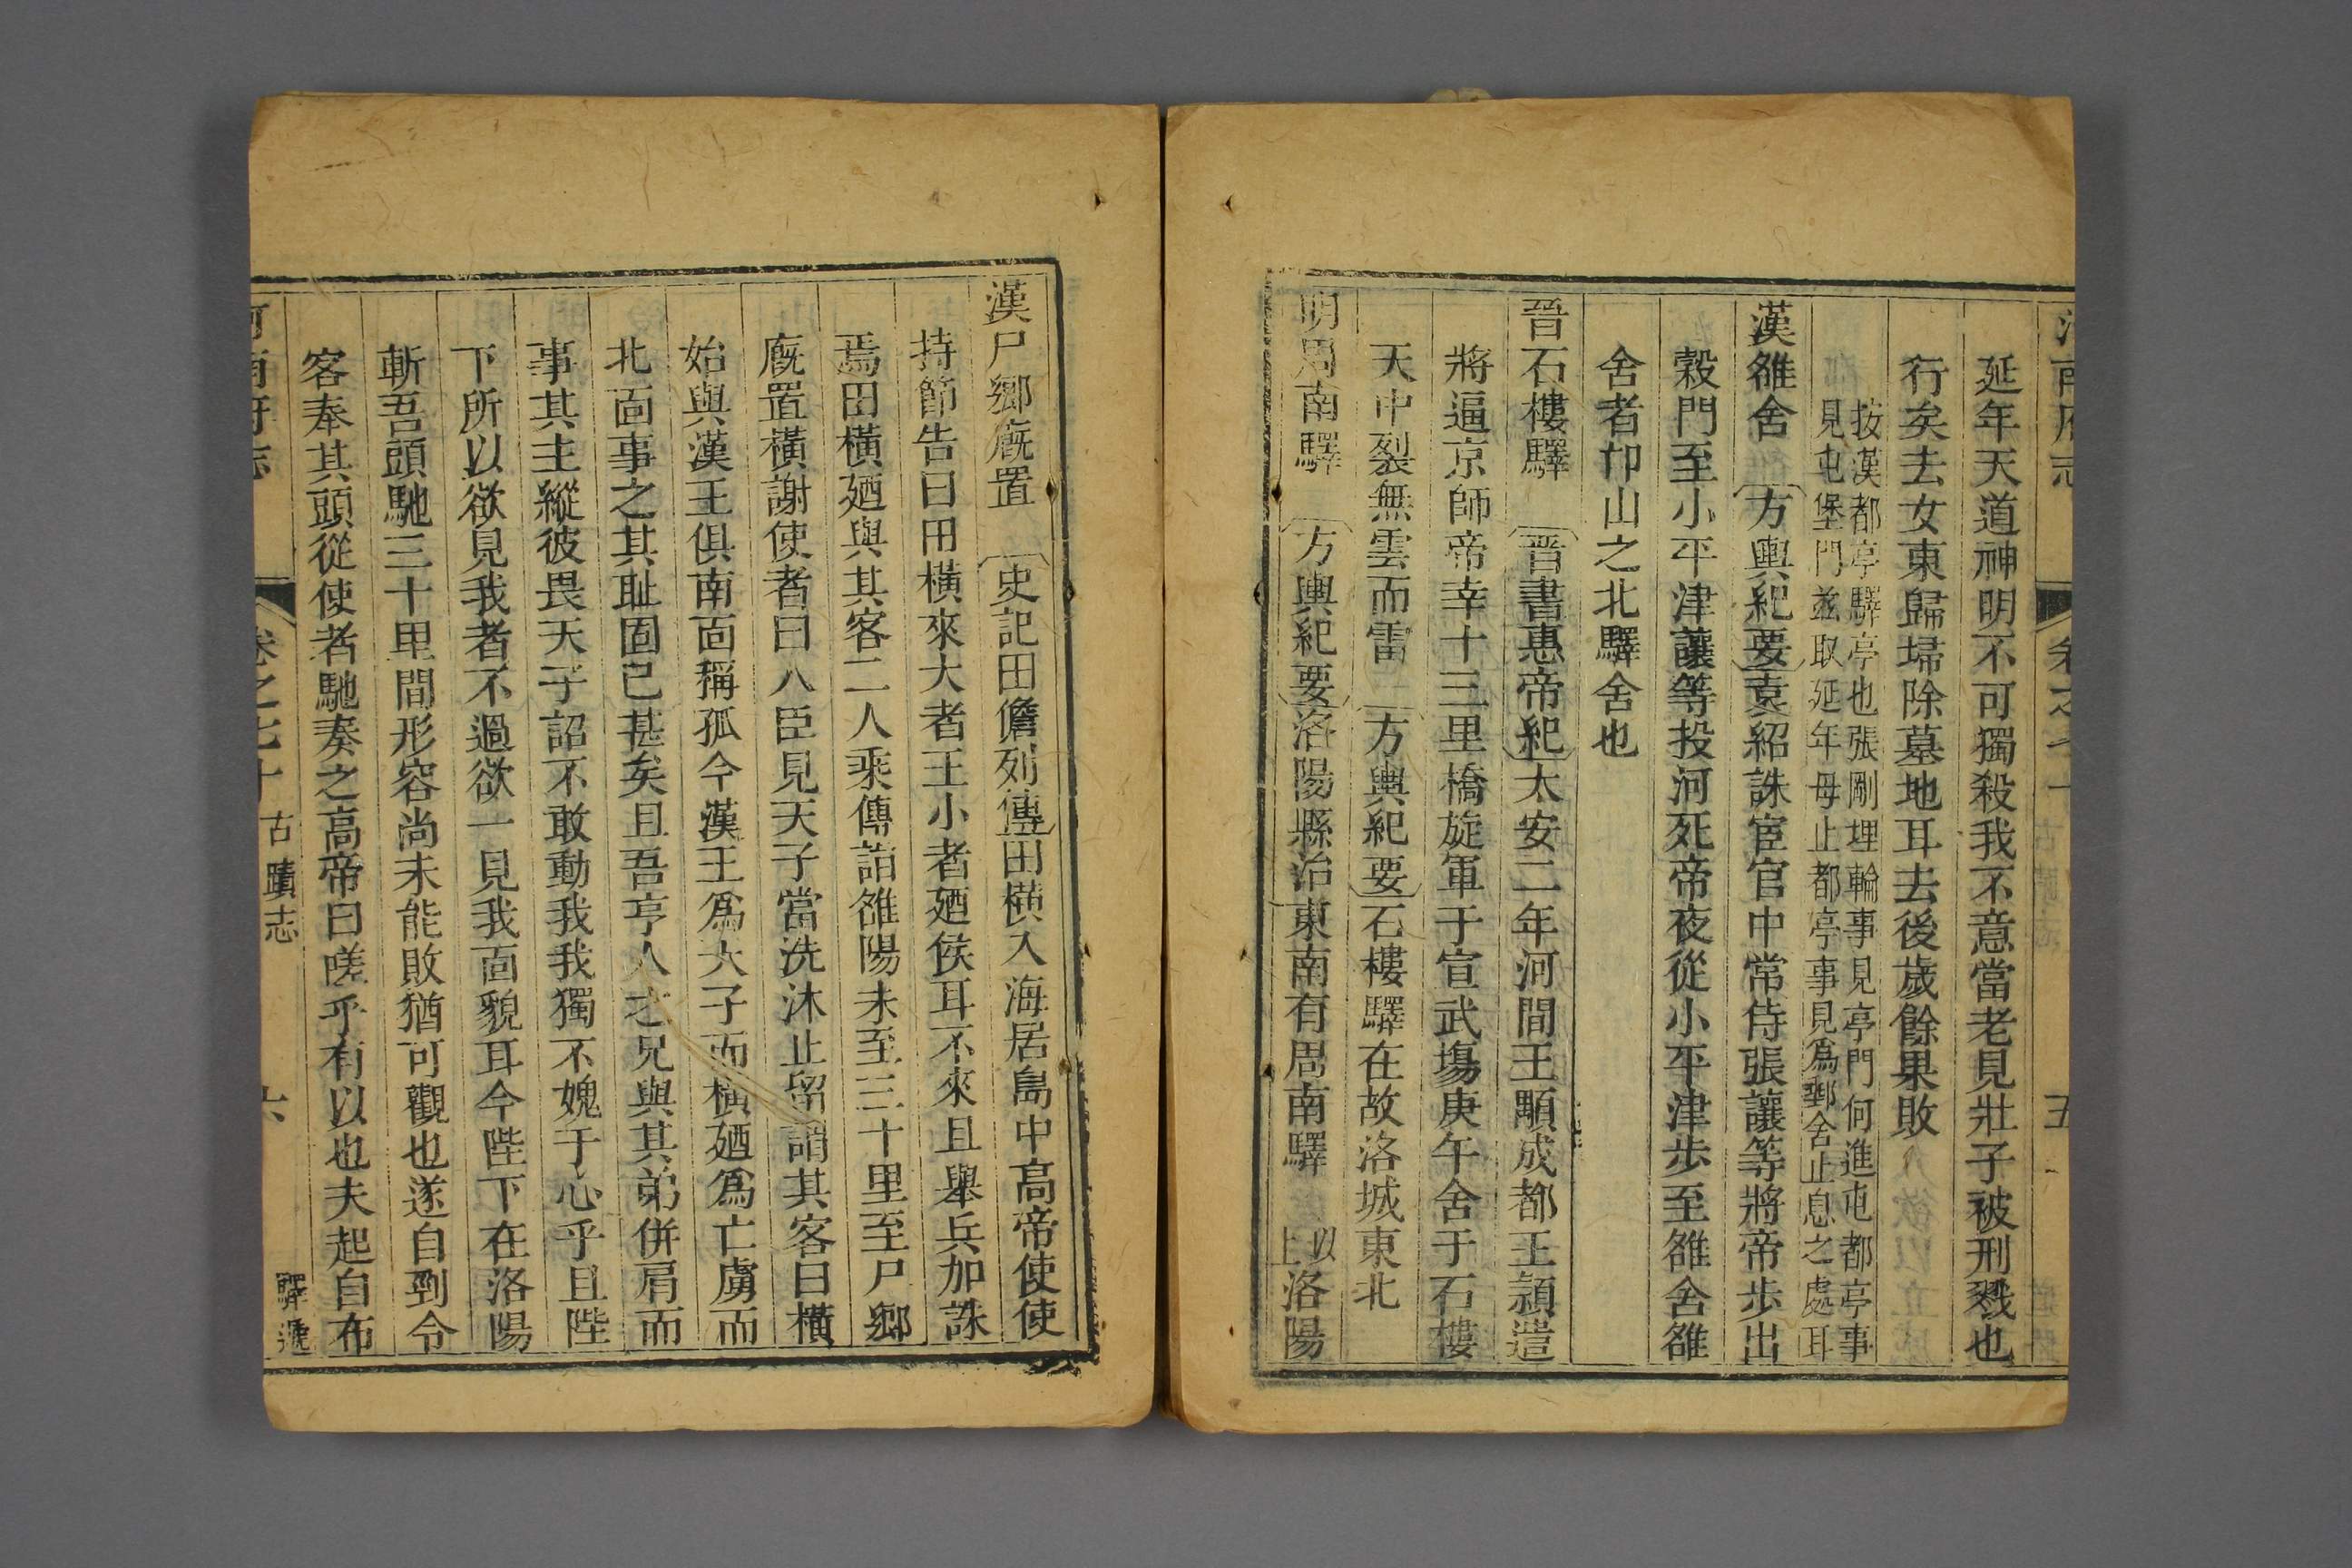 河南府志 卷之七十 古蹟志 五
延年天道神明不可獨殺我不意當老見壯子被刑戮也
行矣去女東歸埽除墓地耳去後歲餘果敗
按漢都亭驛亭也張剛埋輪事見亭門何進屯都亭事
見屯堡門玆取延年母止都亭事見爲郵舍止息之處耳
漢雒舍 方輿紀要袁紹誅宦官中常侍張讓等將帝步出
穀門至小平津讓等投河死帝夜從小平津步至雒舍雒
舍者邙山之北驛舍也
晉石樓驛 晋書惠帝紀太安二年河間王顒成都王穎遣
將逼京師帝幸十三里橋旋軍于宣武塲庚午舍于石樓
天中裂無雲而雷 方輿紀要石樓驛在故洛城東北
明周南驛 方輿紀要洛陽縣治東南有周南驛 以上洛陽
漢尸鄉廐置 史記田儋列傳田橫入海居島中高帝使使
持節告曰田橫來大者王小者廼侯耳不來且舉兵加誅
焉田橫廼與其客二人乘傳詣雒陽未至三十里至尸鄉
廐置橫謝使者曰人臣見天子當洗沐止留謂其客曰橫
始與漢王俱南面稱孤今漢王爲天子而橫廼爲亡虜而
北面事之其耻固已甚矣且吾亨人之兄與其弟併肩而
事其主縱彼畏天子詔不敢動我我獨不媿于心乎且陛
下所以欲見我者不過欲一見我面貌耳今陛下在洛陽
斬吾頭馳三十里間形容尚未能敗猶可觀也遂自剄令
客奉其頭從使者馳奏之高帝曰嗟乎有以也夫起自布
河南府志 卷之七十 古蹟志 六 驛遞